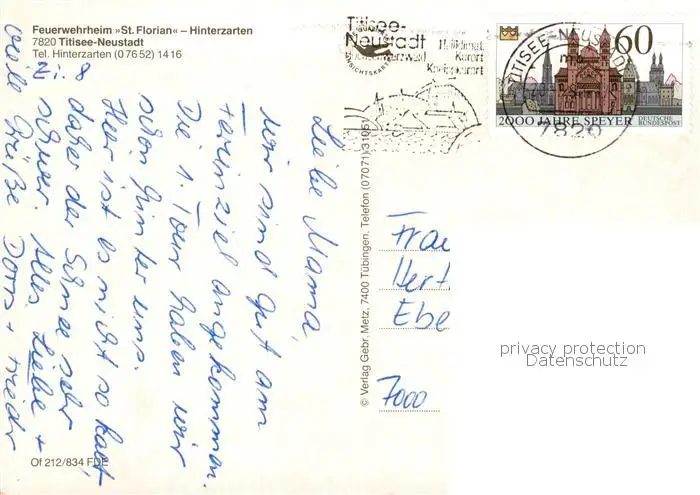 Feuerwehrheim »St. Florian« – Hinterzarten
7820 Titisee-Neustadt
Tel. Hinterzarten (0 76 52) 14 16
Liebe Mama,
wir sind gut am
Ferienziel angekommen.
Die 1. Tour haben wir
schon hinter uns.
Hier ist es nicht so kalt,
daher der Schnee sehr
schwer. Alles Liebe +
viele Grüße
Of 212/834 FDE
© Verlag Gebr. Metz, 7400 Tübingen, Telefon (07071) 3195
Titisee-
Neustadt
Heilklimat.
Kurort
Kneippkurort
TITISEE-NEUSTADT
7820
60
2000 JAHRE SPEYER
DEUTSCHE
BUNDESPOST
Frau
7000
privacy protection
Datenschutz